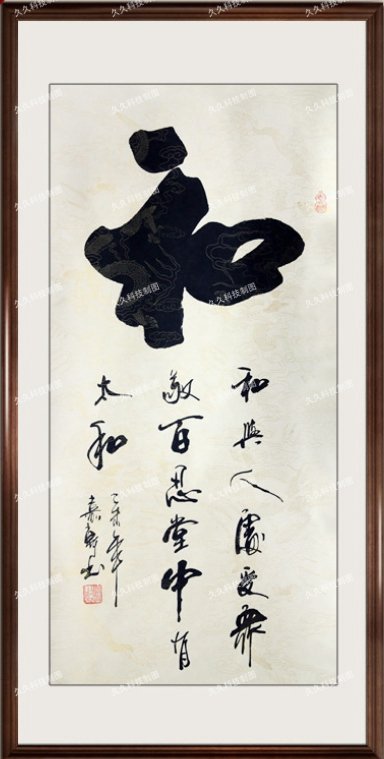 和
和與人處受衆
敬百忍堂中有
太和
乙未年
久久科技制图